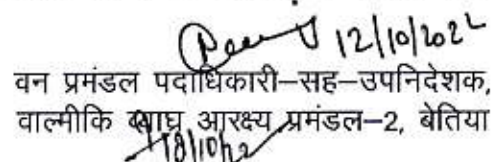 12/10/2022
वन प्रमंडल पदाधिकारी–सह–उपनिदेशक,
वाल्मीकि ब्याघ्र आरक्ष्य प्रमंडल–2, बेतिया
18/10/22